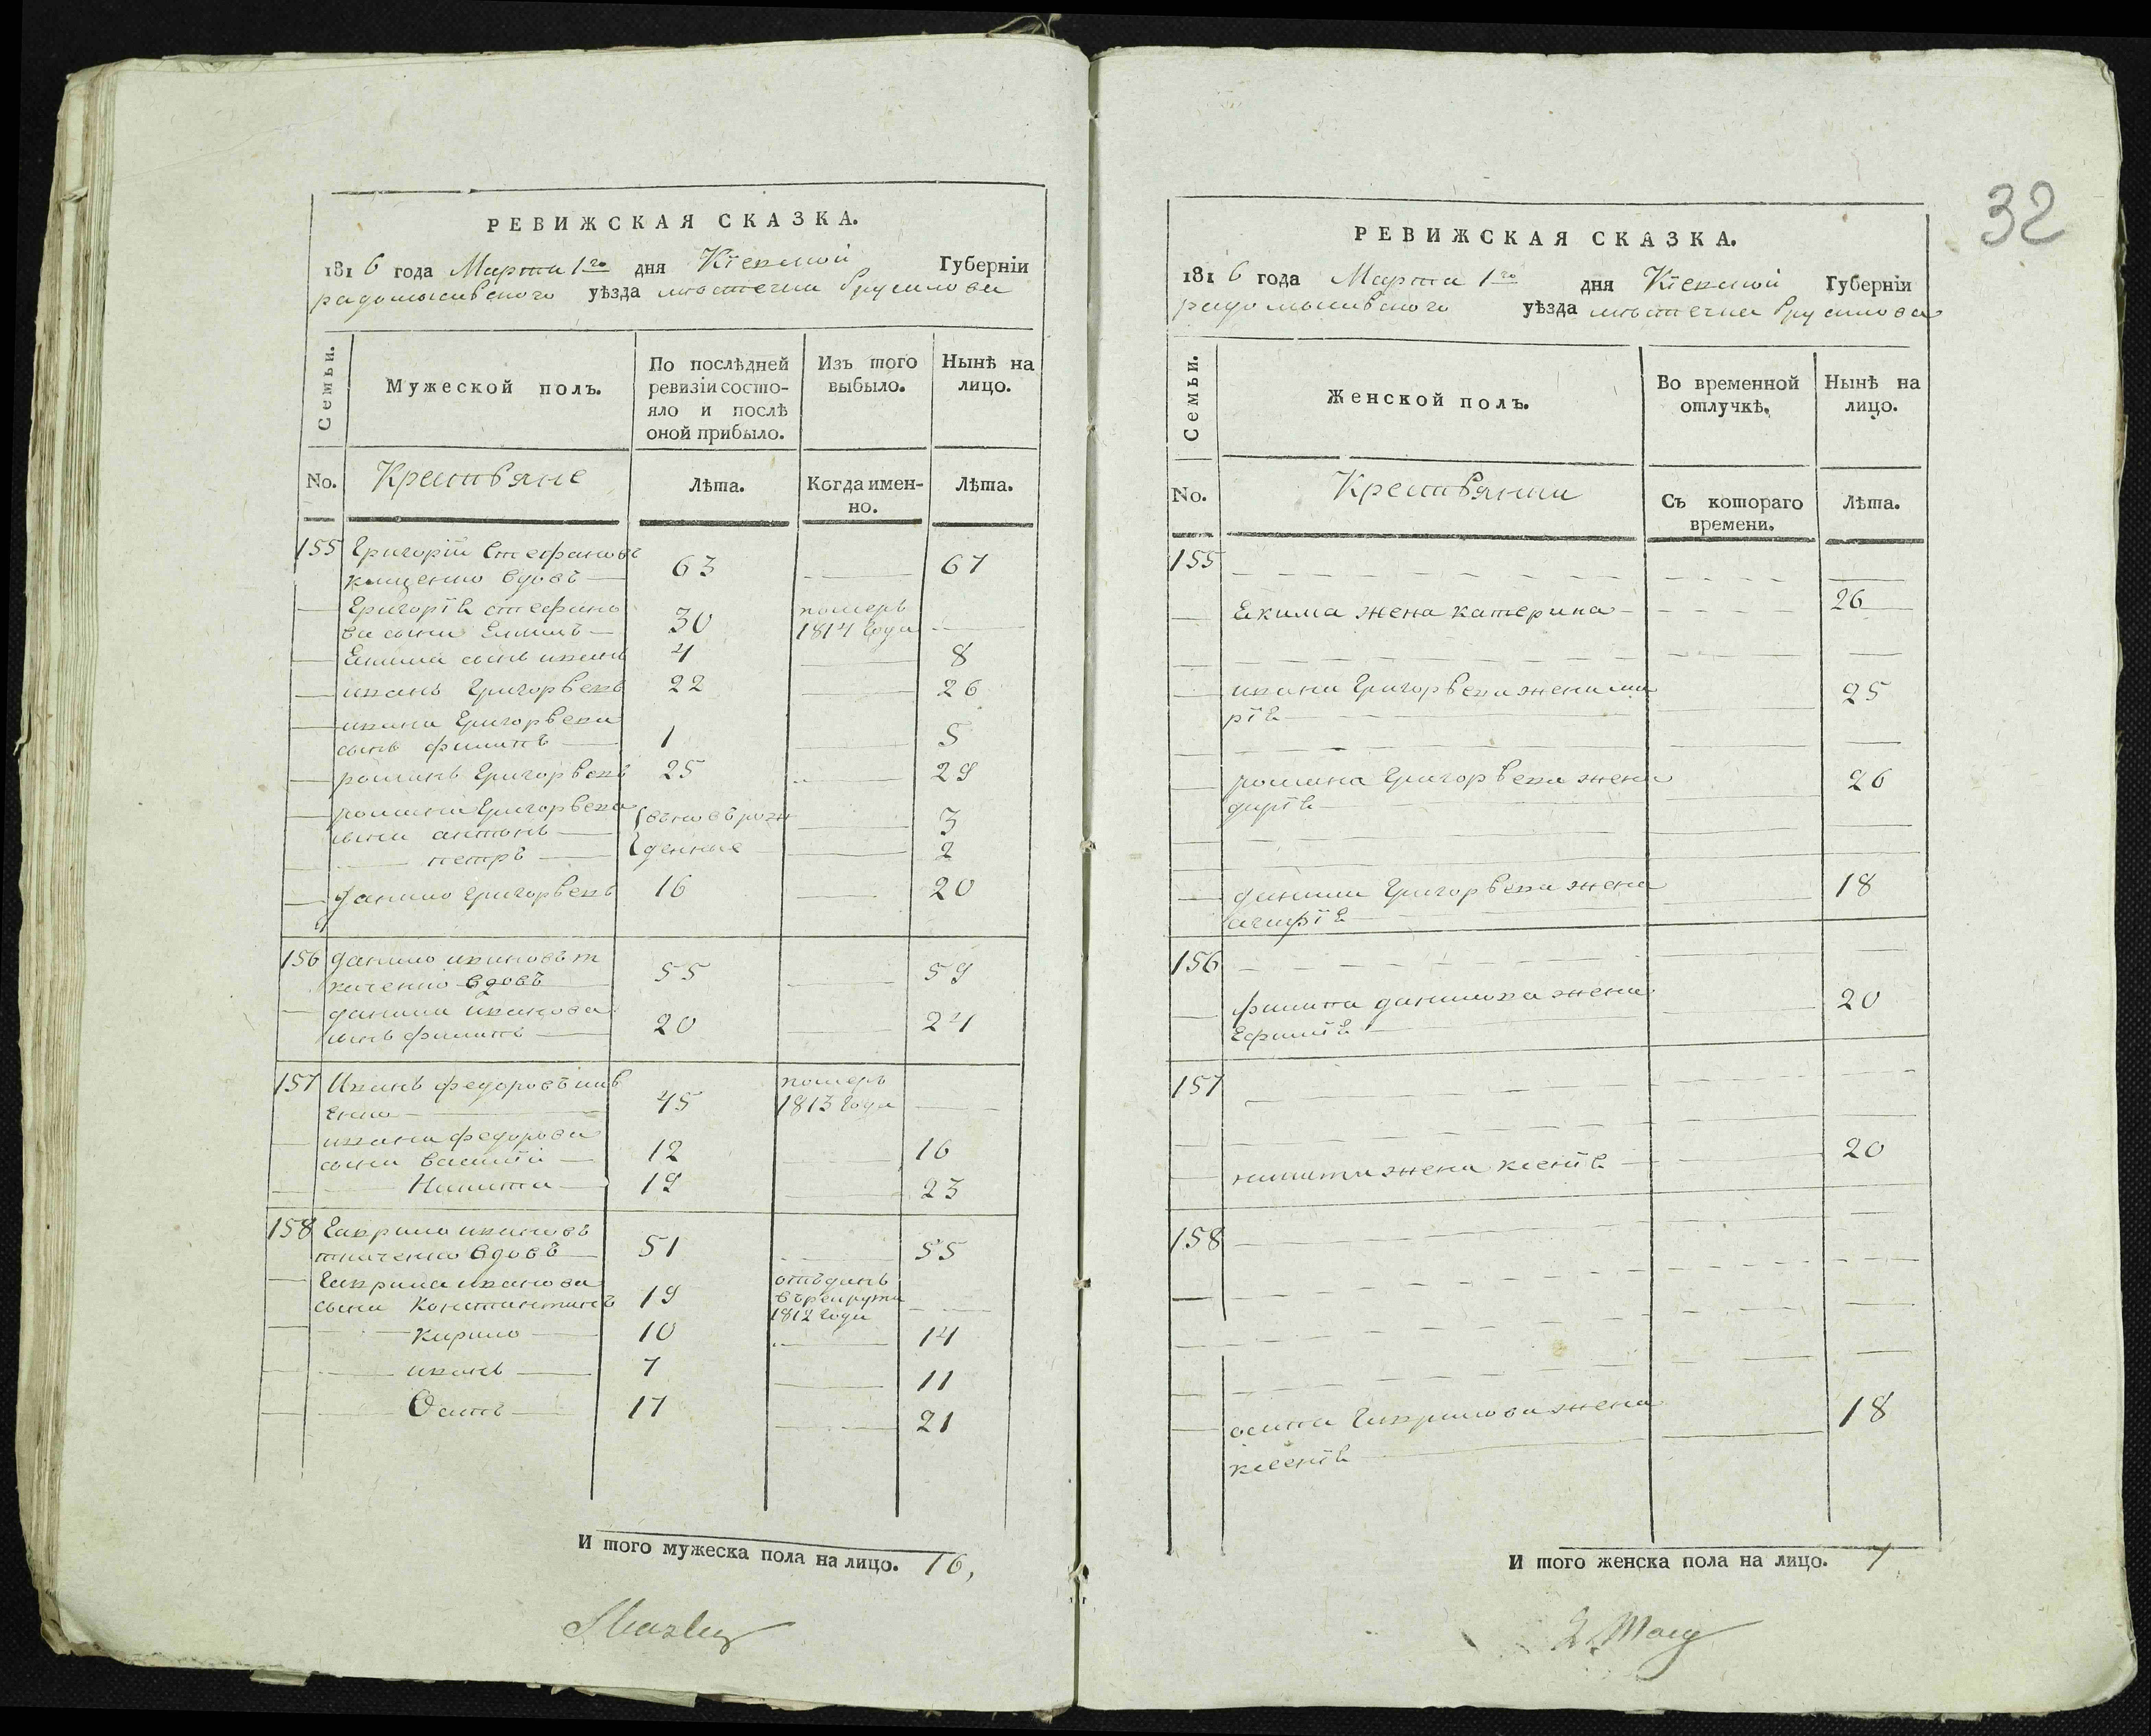 РЕВИЖСКАЯ СКАЗКА.
1816 года Марта 1го дня Кіевской Губерніи
радомысльского уѣзда мѣстечка Брусилова
Семьи.
Мужеской полъ.
По послѣдней
ревизіи состо-
яло и послѣ
оной прибыло.
Изъ того
выбыло.
Нынѣ на
лицо.
No.
Крестьяне
Лѣта.
Когда имен-
но.
Лѣта.
155 Григорій Стефановъ
вдовъ 63 67
Григорія стефано
ва сыны Екимъ 30 померъ 1814 года
Екима сынъ иванъ 4 8
иванъ Григорьевъ 22 26
ивана Григорьева
сынъ филипъ 1 5
романъ Григорьевъ 25 29
романа Григорьева
сыны антонъ вновь рож 3
петръ денные 2
данило Григорьевъ 16 20
156 данило ивановъ т
каченко вдовъ 55 59
данила иванова
сынъ филипъ 20 24
157 Иванъ федоровъ
енко 45 померъ 1813 года
ивана федорова
сыны василій 12 16
Никита 19 23
158 Гаврило ивановъ
ткаченко вдовъ 51 55
Гаврила иванова
сыны Константинъ 19 отъданъ
въ рекруты
1812 года
кирило 10 14
иванъ 7 11
Осипъ 17 21
И того мужеска пола на лицо. 16,
32
РЕВИЖСКАЯ СКАЗКА.
1816 года Марта 1го дня Кіевской Губерніи
радомысльского уѣзда мѣстечка Брусилова
Семьи.
Женской полъ.
Во временной
отлучкѣ.
Нынѣ на
лицо.
No.
Крестьянки
Съ котораго
времени.
Лѣта.
155
Екима жена катерина 26
ивана Григорьева жена ма
рія 25
романа Григорьева жена
дарія 26
данила Григорьева жена
агафія 18
156
филипа данилова жена
Ефимія 20
157
никиты жена ксенія 20
158
осипа Гаврилова жена
ксенія 18
И того женска пола на лицо. 7